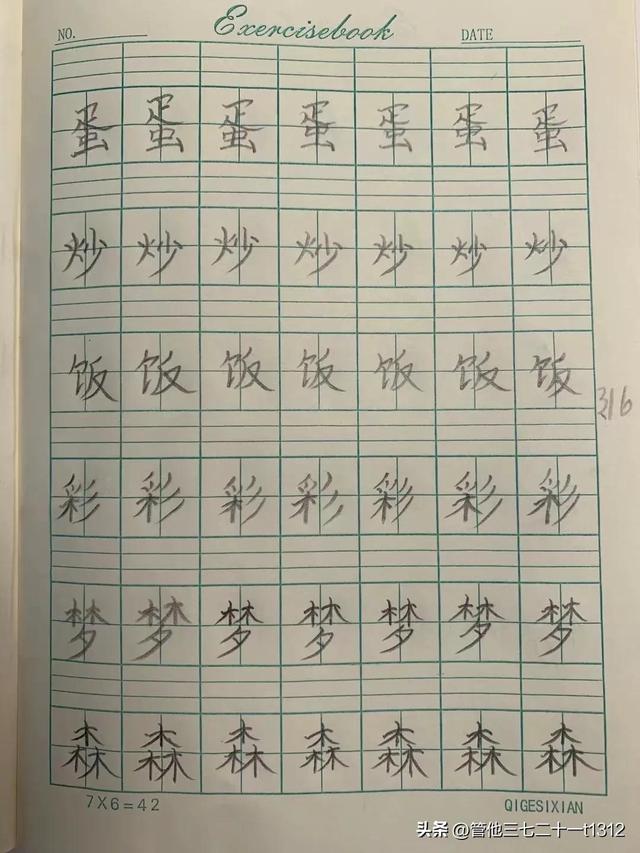 Exercisebook
NO.
DATE
蛋 蛋 蛋 蛋 蛋 蛋 蛋
炒 炒 炒 炒 炒 炒 炒
饭 饭 饭 饭 饭 饭 饭
316
彩 彩 彩 彩 彩 彩 彩
梦 梦 梦 梦 梦 梦 梦
森 森 森 森 森 森 森
7X6=42
QIGESIXIAN
头条 @管他三七二十一t1312